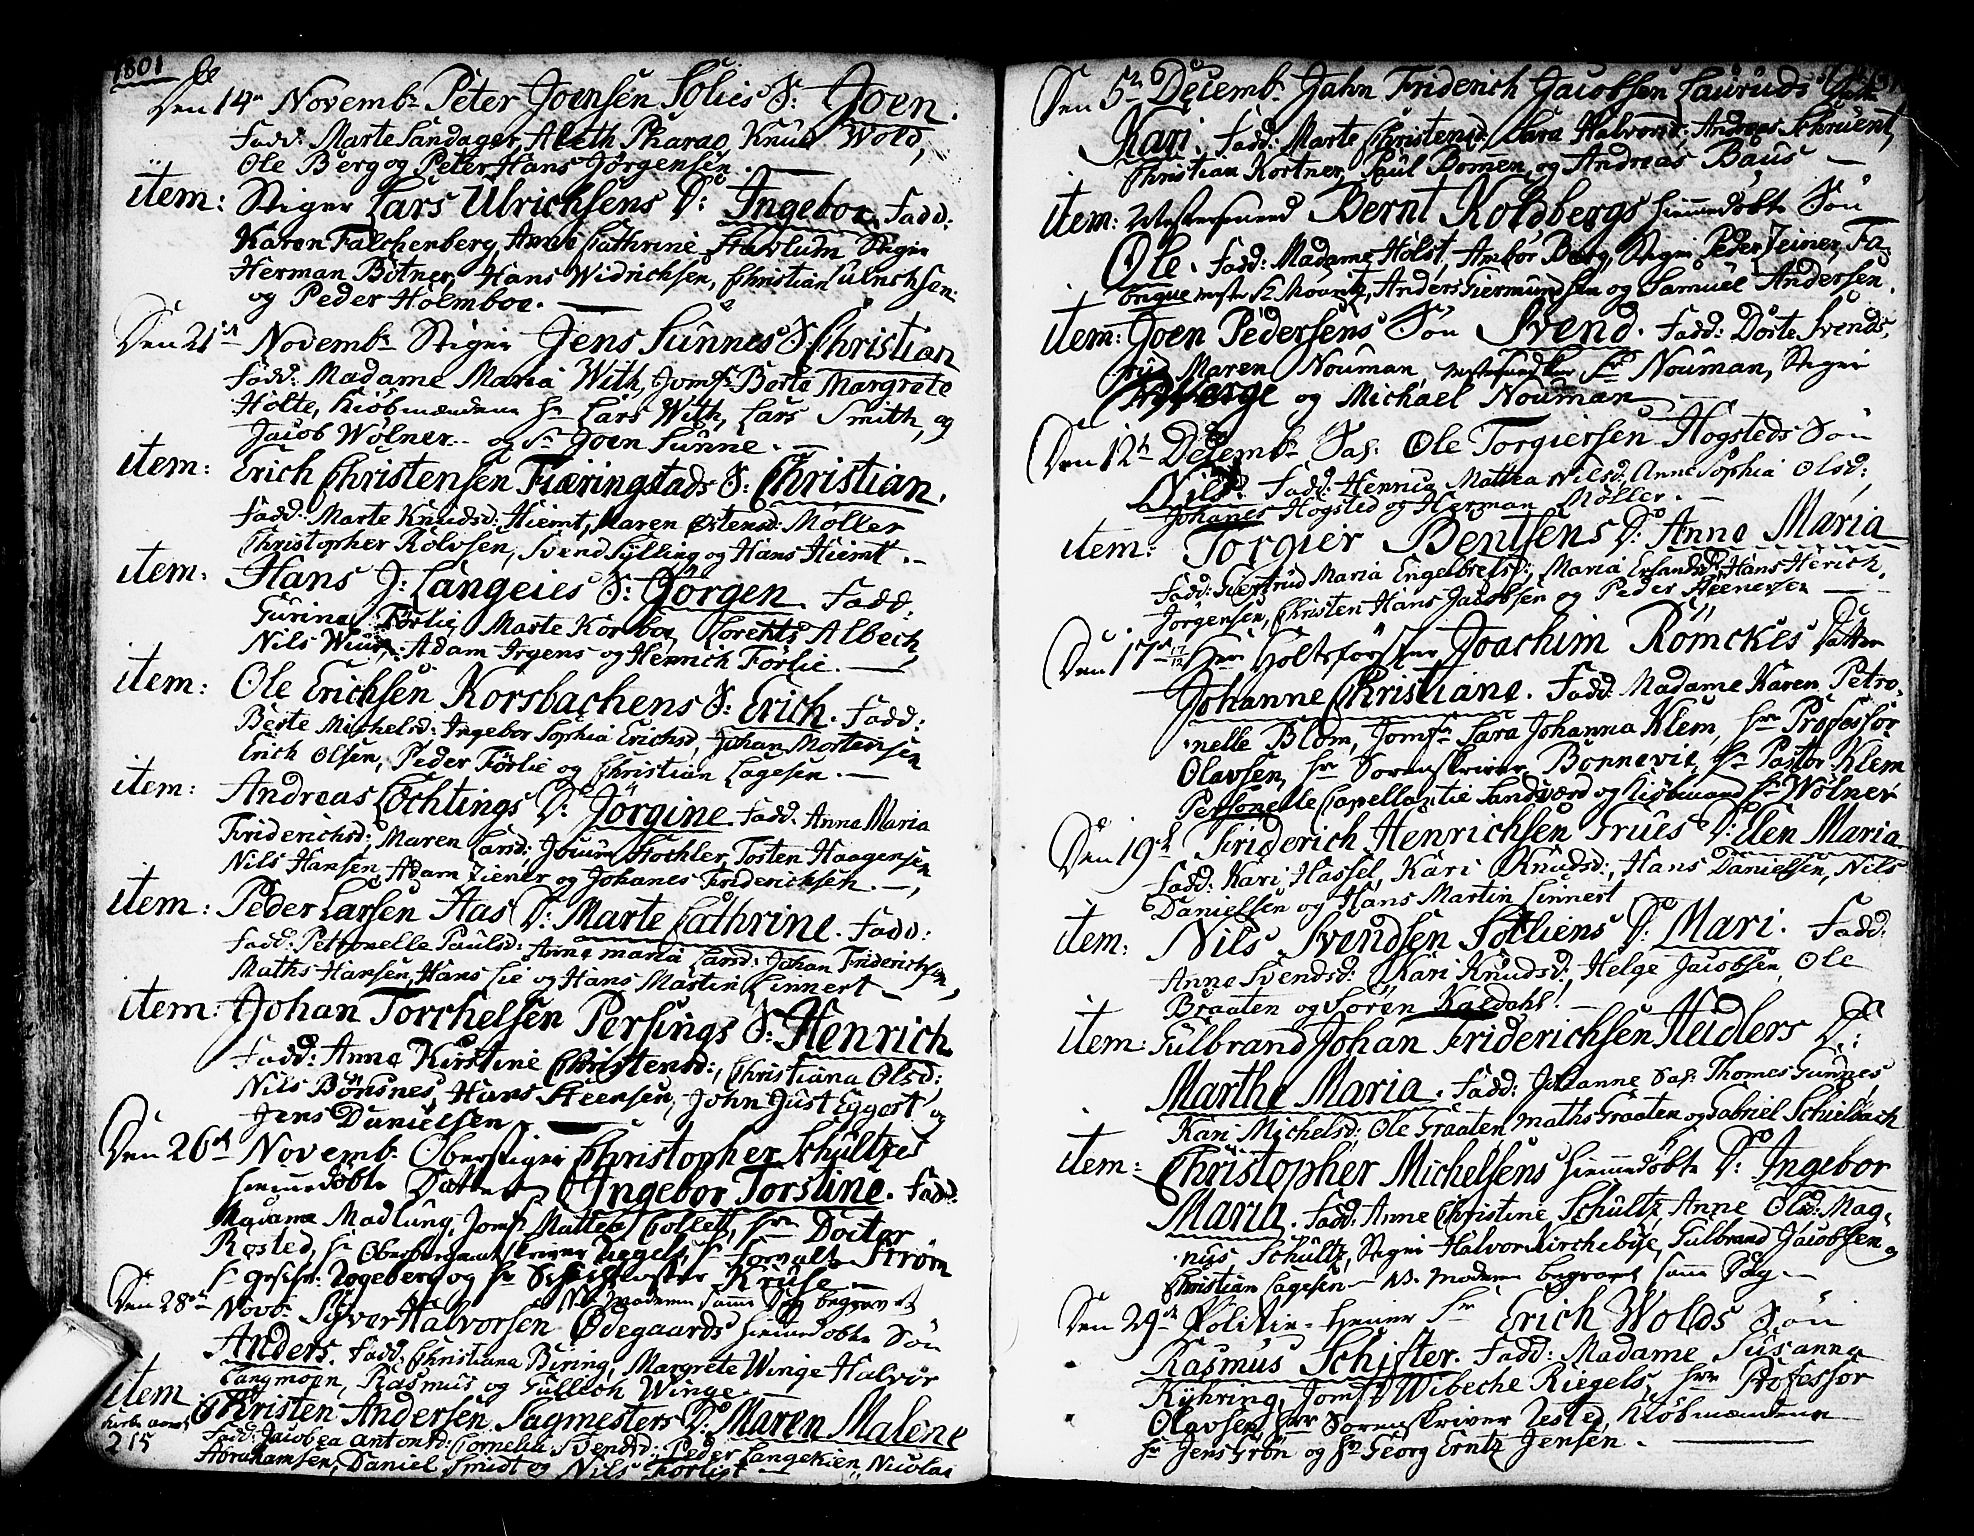 1801
Den 14de Novemb. Peter Joensen Solies S: Joen.
Fadd: Marte Sandager, Aleth Pharao, Knud Wold,
Ole Berg og Peter Hans Jörgensen.
item: Stiger Lars Ulrichsens D: Ingebor. Fadd:
Karen Falchenberg, Anne Cathrine Stavlum, Stiger
Herman Bötner, Hans Widrichsen, Christian Ulrichsen
og Peder Holmboe.
Den 21de Novemb. Stiger Jens Sunnes S: Christian
Fadd: Madame Maria With, Jomf. Berte Margrete
Holte, Kiöbmændene Hr Lars With, Lars Smith, og
Jacob Wölner og Sr Joen Sunne.
item: Erich Christensen Fiæringstads S: Christian.
Fadd: Marte Knudsd: Hiemt, Maren Östensd: Møller
Christopher Rolvsen, Svend Sylling og Hans Hiemt.
item: Hans J: Langeies S: Jörgen. Fadd.
Gurine Förlie, Marte Korboe, Lorentz Albech,
Nils Wiur, Adam Irgens og Henrich Förlie.
item: Ole Erichsen Korsbachens S: Erich. Fadd:
Berte Michelsd: Ingebor Sophia Erichsd, Johan Mortensen
Erich Olsen, Peder Förlie og Christian Lagesen.
item: Andreas Lochtings D: Jörgine. Fadd: Anne Maria
Friderichsd:, Maren Larsd: Fochler, Tosten Haagensen
Nils Hansen, Adam Ziener og Johanes Friderichsen.
item: Peder Larsen Aas D: Marte Cathrine. Fadd:
Fadd: Petronelle Paulsd: Anne Maria Larsd: Johan Friderichsen,
Maths Hansen, Hans Lie og Hans Martin Linnert
item: Johan Torchelsen Persings S: Henrich
Fadd: Anne Kirstine Christensd:, Christiana Olsd:
Nils Bönsnes, Hans Steensen, John Just Eggert og
Jens Danielsen
Den 26de Novemb. Oberstiger Christopher Schultzes
hiemmedöbte Datter Ingebor Torstine. Fadd:
Madame Madlung, Jomf. Mattea Collett, Hr Doctor
Rosted, Sr Oberbergamtskriver Riegels, Sr Forvalter Ström
Sr Zogeberg og Hr Krüse
NB Moderen samme Dag begravet
Den 28de Novb. Syver Halvorsen Ödegaards hiemmedöbte Sön
Anders. Fadd: Christiana Biring, Margrete Winge Halvor
Langmoen, Rasmus og Gullich Winge
item Christen Andersen Sagmesters D: Maren Malene
215
Fadd: Jacobea Antonsd: Cornelia Svendsd: Peder Langekien, Nicolai
Abrahamsen, Daniel Smidt og Nils Förlist
Den 5te Decemb. Jahn Friderich Jacobsen Lauruds
Kari. Fadd: Marte Christensd: Sara Halvorsd: Andreas Schruent,
Christian Kortner, Paul Bomen og Andreas Baus
item: Mestersvend Bernt Koldbergs hiemmedöbte Sön
Ole. Fadd: Madame Holst, Ambor Berg, Stiger Peder Zeiner, Fa-
brique mester Sr Mouritz, Anders Giermundsen og Samuel Andersen.
item: Joen Pedersens Sön Svend. Fadd: Dorte Svends
rüd, Maren Nouman, Sr Nouman, Stiger
Verge og Michael Nouman
Den 12te Decemb. Sal. Ole Torgiersen Hogsteds Sön
Nils. Fadd: Henrica Mattea Nilsd: Anne Sophia Olsd:,
Johanes Hogsted og Herman Møller.
item: Torgier Bentsens D: Anne Maria
Fadd: Giertrud Maria Engelbretsd:, Maria Ersland Hans Herich
Jörgensen, Christen Hans Jacobsen og Peder Heenersen
Den 17de 17/12 Herr Holtsförster Joachim Römckes Datter
Johanne Christiane. Fadd: Madame Karen Petro-
nelle Blom, Jomfr Sara Johanna Klem, Hr Professor
Olavsen, Hr Sorenskriver Bonnevie, Hr Pastor Klem
Personelle Capellan til Sandsværd og Kiöbmand Hr Wölner
Den 19de Friderich Henrichsen Trues D: Elen Maria
Fadd: Kari Hassel, Kari Knudsd:, Hans Danielsen, Nils
Danielsen og Hans Martin Linnert
item: Nils Svendsen Solliens D: Mari. Fadd:
Anne Svendsd: Kari Knudsd:, Helge Jacobsen, Ole
Braaten og Sören Kasdahl.
item: Gulbrand Johan Friderichsen Heidlers D:
Marthe Maria. Fadd: Johanne Sal: Thomes Gunnes,
Kari Michelsd: Ole Graaten Maths Graaten og Gabriel Schielbach
item: Christopher Michelsens hiemmedöbte D: Ingebor
Maria. Fadd: Anne Christine Schultz, Anne Olsd: Mag-
nus Schultz, Stiger Halvor Kirchebye, Gulbrand Jacobsen og
Christian Lagesen. NB. Moderen begravet samme Dag.
Den 29de Politie-tiener Sr Erich Wolds Sön
Rasmus Schifter. Fadd: Madame Susanna
Kyhring, Jomfr Wibeche Riegels, Hrr Professor
Olavsen, Hrr Sorenskriver Zested, Kiöbmændene
Hr Jens Grön og Hr Georg Erntz Jensen.